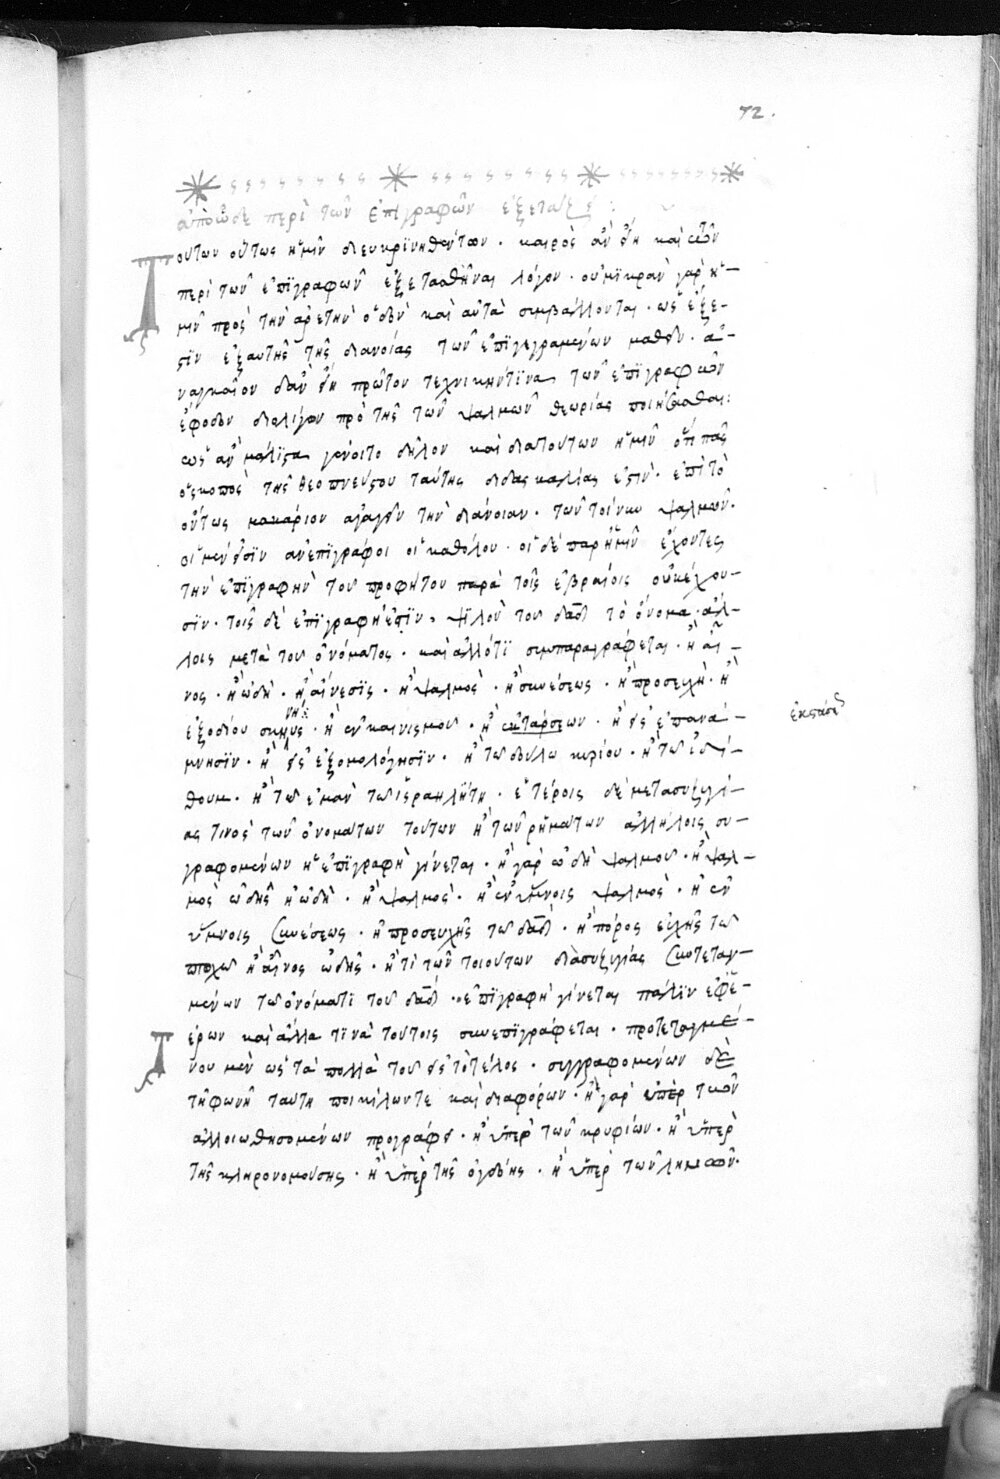 72.
ἀπὸ ὧδε περὶ τῶν ἐπιγραφῶν ἐξετάζει:
Τούτων οὕτως ἡμῖν διευκρινηθέντων · καιρὸς ἂν εἴη καὶ τὸν
περὶ τῶν ἐπιγραφῶν ἐξετασθῆναι λόγον · οὐ μικρὰν γὰρ ἡ-
μῖν πρὸς τὴν ἀρετὴν ὁδὸν καὶ αὐτὰ συμβάλλονται · ὡς ἔξε-
στιν ἐξ αὐτῆς τῆς διανοίας τῶν ἐπιγεγραμένων μαθεῖν · ἀ-
ναγκαῖον δ' ἂν εἴη πρῶτον τεχνικήν τινα τῶν ἐπιγραφῶν
ἔφοδον δι' ὀλίγων πρὸ τῆς τῶν ψαλμῶν θεωρίας ποιήσασθαι:
ὡς ἂν μάλιστα γένοιτο δῆλον καὶ διὰ τούτων ἡμῖν ὅτι πᾶς
ὁ σκοπὸς τῆς θεοπνεύστου ταύτης διδασκαλίας ἐστὶν · ἐπὶ τὸ
ὄντως μακάριον ἀγαγεῖν τὴν διάνοιαν · τῶν τοίνυν ψαλμῶν ·
οἱ μέν εἰσιν ἀνεπίγραφοι οἱ καθόλου · οἱ δὲ παρ' ἡμῖν ἔχοντες
τὴν ἐπιγραφὴν τοῦ προφήτου παρὰ τοῖς ἑβραίοις οὐκ ἔχου-
σιν · τοῖς δὲ ἐπιγραφή ἐστιν, ψιλοῦ τοῦ δαδ τὸ ὄνομα · ἄλ-
λοις μετὰ τοῦ ὀνόματος · καὶ ἄλλό τι συμπαραγράφεται · ἢ αἶ-
νος · ἢ ὠδὴ · ἢ αἴνεσις · ἢ ψαλμὸς · ἢ συνέσεως · ἢ προσευχὴ · ἢ
ἐξοδίου σκηνῆς · ἢ ἐγκαινισμοῦ · ἢ ἐκτάρσεων · ἢ εἰς ἐπανά-
ἐκστάσε
μνησιν · ἢ εἰς ἐξομολόγησιν · ἢ τῷ δούλῳ κυρίου · ἢ τῷ ἰδι-
θουμ · ἢ τῷ ἐμαν τῷ ἰσραηλίτῃ · ἑτέροις δὲ μετὰ συζυγί-
ας τινὸς τῶν ὀνομάτων τούτων ἢ τῶν ῥημάτων ἀλλήλοις συ-
γραφομένων ἡ ἐπιγραφὴ γίνεται · ἢ γὰρ ὠδὴ ψαλμοῦ · ἢ ψαλ-
μὸς ὠδῆς ἢ ὠδὴ · ἢ ψαλμὸς · ἢ ἐν ὕμνοις ψαλμὸς · ἢ ἐν
ὕμνοις συνέσεως · ἢ προσευχῆς τῷ δαδ · ἢ πόρος εὐχῆς τῷ
πτωχῷ ἢ αἶνος ὠδῆς · ἤ τι τῶν τοιούτων διὰ συζυγίας
μένων τῷ ὀνόματι τοῦ δαδ · ἐπιγραφὴ γίνεται πάλιν ἐφ' ἑτ-
έρων καὶ ἄλλα τινὰ τούτοις συνεπιγράφεται · προτεταγμέ-
νου μὲν ὡς τὰ πολλὰ τοῦ εἰς τὸ τέλος · συγγραφομένων δὲ
τῇ φωνῇ ταύτῃ ποικίλων τε καὶ διαφόρων · ἢ γὰρ ὑπὲρ τῶν
ἀλλοιωθησομένων προγράφει · ἢ ὑπὲρ τῶν κρυφίων · ἢ ὑπὲρ
τῆς κληρονομούσης · ἢ ὑπὲρ τῆς ὀγδόης · ἢ ὑπὲρ τῶν ληνῶν ·